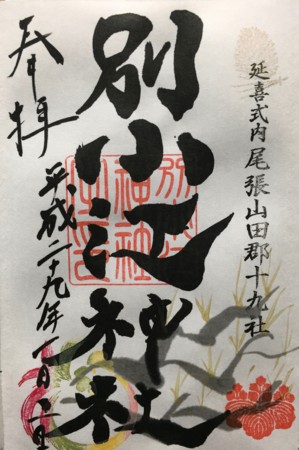 延喜式内尾張山田郡十九社
別小江神社
奉拝
平成二十九年一月一日